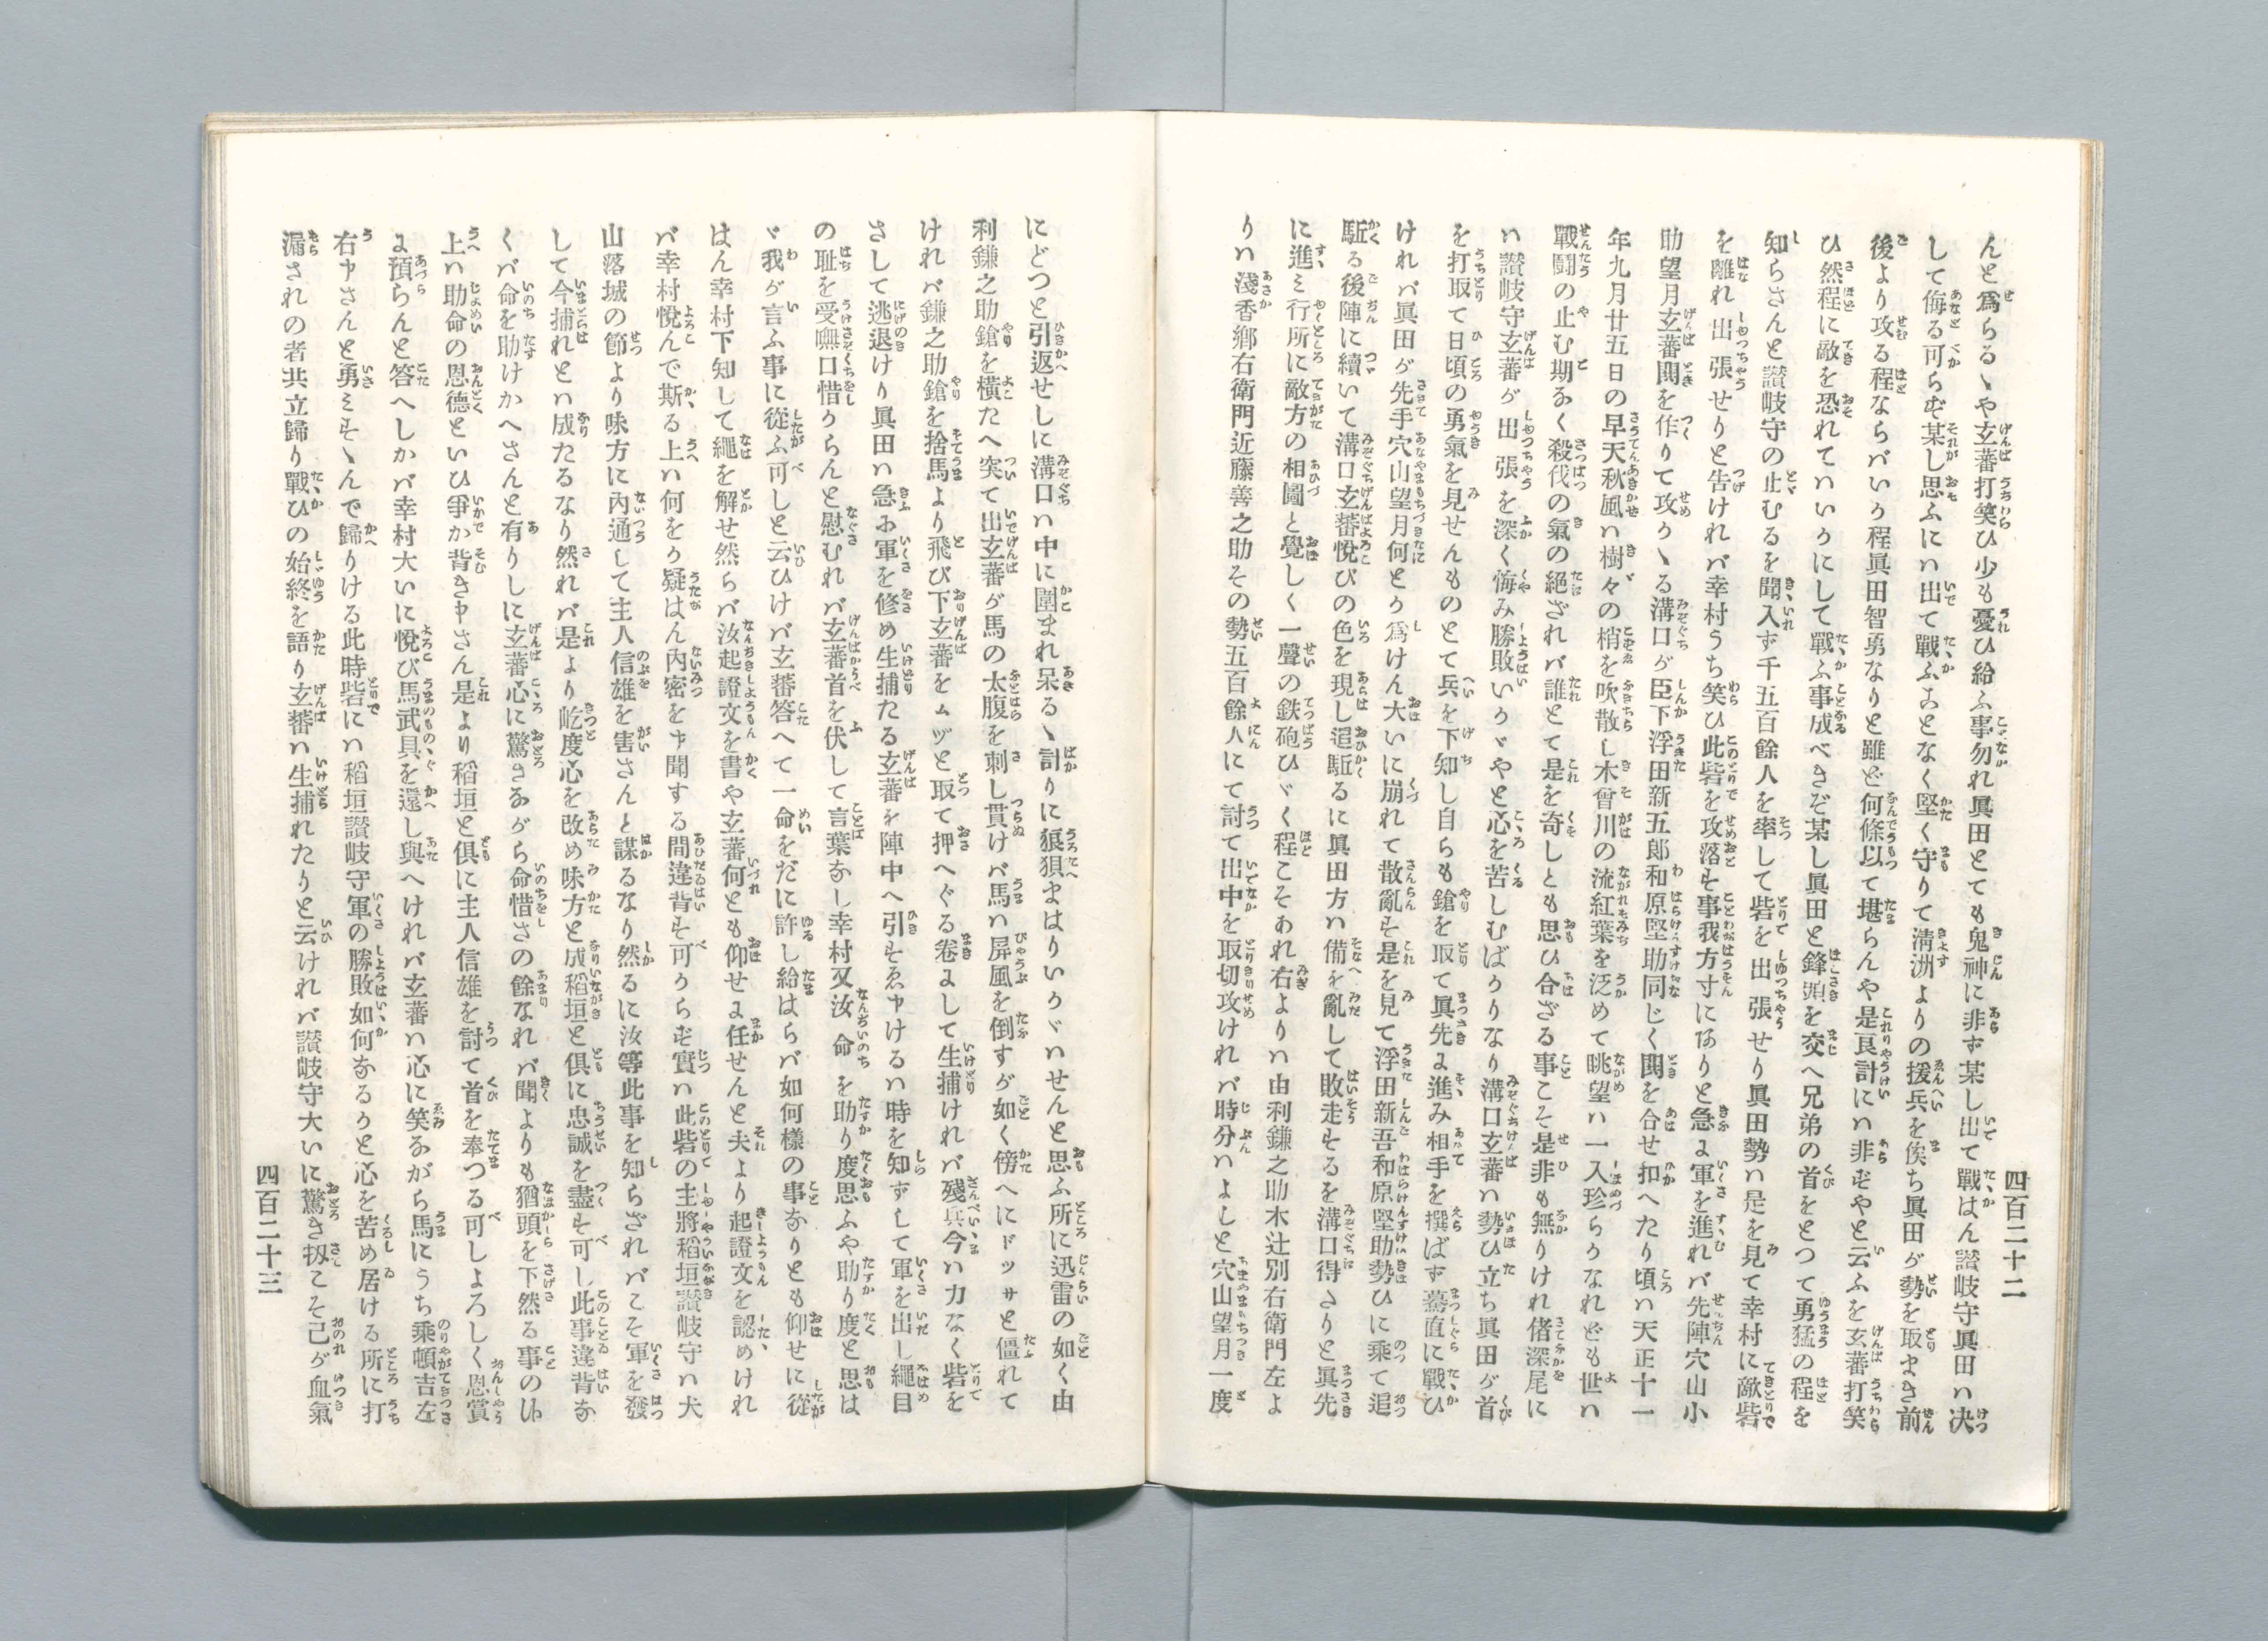 四百二十二
んと爲らるゝや玄蕃打笑ひ少も憂ひ給ふ事勿れ眞田とても鬼神に非ず某し出て戰はん讃岐守眞田ハ决
して侮る可らず某し思ふにハ出て戰ふことなく堅く守りて淸洲よりの援兵を俟ち眞田が勢を取まき前
後より攻る程ならバいか程眞田智勇なりと雖ど何條以て堪らんや是良計にハ非ずやと云ふを玄蕃打笑
ひ然程に敵を恐れてハいかにして戰ふ事成べきぞ某し眞田と鋒頭を交へ兄弟の首をとつて勇猛の程を
知らさんと讃岐守の止むるを聞入ず千五百餘人を率して砦を出張せり眞田勢ハ是を見て幸村に敵砦
を離れ出張せりと告けれバ幸村うち笑ひ此砦を攻落す事我方寸にありと急ま軍を進れバ先陣穴山小
助望月玄蕃鬨を作りて攻かゝる溝口が臣下浮田新五郎和原堅助同じく鬨を合せ扣へたり頃ハ天正十一
年九月廿五日の早天秋風ハ樹々の梢を吹散し木曾川の流紅葉を泛めて眺望ハ一入珍らかなれども世ハ
戰鬪の止む期なく殺伐の氣の絕ざれバ誰とて是を奇しとも思ひ合ざる事こそ是非も無りけれ偖深尾に
ハ讃岐守玄蕃が出張を深く悔み勝敗いかゞやと心を苦しむばかりなり溝口玄蕃ハ勢ひ立ち眞田が首
を打取て日頃の勇氣を見せんものとて兵を下知し自らも鎗を取て眞先に進み相手を撰ばず驀直に戰ひ
けれバ眞田が先手穴山望月何とか爲けん大いに崩れて散亂す是を見て浮田新吾和原堅助勢ひに乘て追
駈る後陣に續いて溝口玄蕃悅びの色を現し追駈るに眞田方ハ備を亂して敗走するを溝口得たりと眞先
に進ミ行所に敵方の相圖と覺しく一聲の鉄砲ひゞく程こそあれ右よりハ由利鎌之助木辻別右衛門左よ
りハ淺香鄕右衛門近藤善之助その勢五百餘人にて討て出中を取切攻けれバ時分ハよしと穴山望月一度
にどつと引返せしに溝口ハ中に圍まれ呆るゝ計りに狼狽まはりいかゞハせんと思ふ所に迅雷の如く由
利鎌之助鎗を橫たへ突て出玄蕃が馬の太腹を刺し貫けバ馬ハ屏風を倒すが如く傍へにドッサと僵れて
けれバ鎌之助鎗を捨馬より飛び下玄蕃をムヅと取て押へぐる卷まして生捕けれバ殘兵今ハ力なく砦を
さして逃退けり眞田ハ急ぎ軍を修め生捕たる玄蕃を陣中へ引すゑ申けるハ時を知ずして軍を出し繩目
の耻を受嘸口惜からんと慰むれバ玄蕃首を伏して言葉なし幸村又汝命を助り度思ふや助り度と思は
ゞ我が言ふ事に從ふ可しと云ひけバ玄蕃答へて一命をだに許し給はらバ如何樣の事なりとも仰せに從
はん幸村下知して繩を解せ然らバ汝起證文を書や玄蕃何とも仰せま任せんと夫より起證文を認めけれ
バ幸村悅んで斯る上ハ何をか疑はん內密を申聞する間違背す可からず實ハ此砦の主將稻垣讃岐守ハ犬
山落城の節より味方に內通して主人信雄を害さんと謀るなり然るに汝等此事を知らざれバこそ軍を發
して今捕れとハ成たるなり然れバ是より屹度心を改め味方と成稻垣と俱に忠誠を盡す可し此事違背な
くバ命を助けかへさんと有りしに玄蕃心に驚きながら命惜さの餘なれバ聞よりも猶頭を下然る事のハ
上ハ助命の恩德といひ爭か背き申さん是より稻垣と俱に主人信雄を討て首を奉つる可しよろしく恩賞
ま預らんと答へしかバ幸村大いに悅び馬武具を還し與へけれバ玄蕃ハ心に笑ながら馬にうち乘頓吉左
右申さんと勇ミすゝんで歸りける此時砦にハ稻垣讃岐守軍の勝敗如何なるかと心を苦め居ける所に打
漏されの者共立歸り戰ひの始終を語り玄蕃ハ生捕れたりと云けれバ讃岐守大いに驚き扨こそ己が血氣
四百二十三